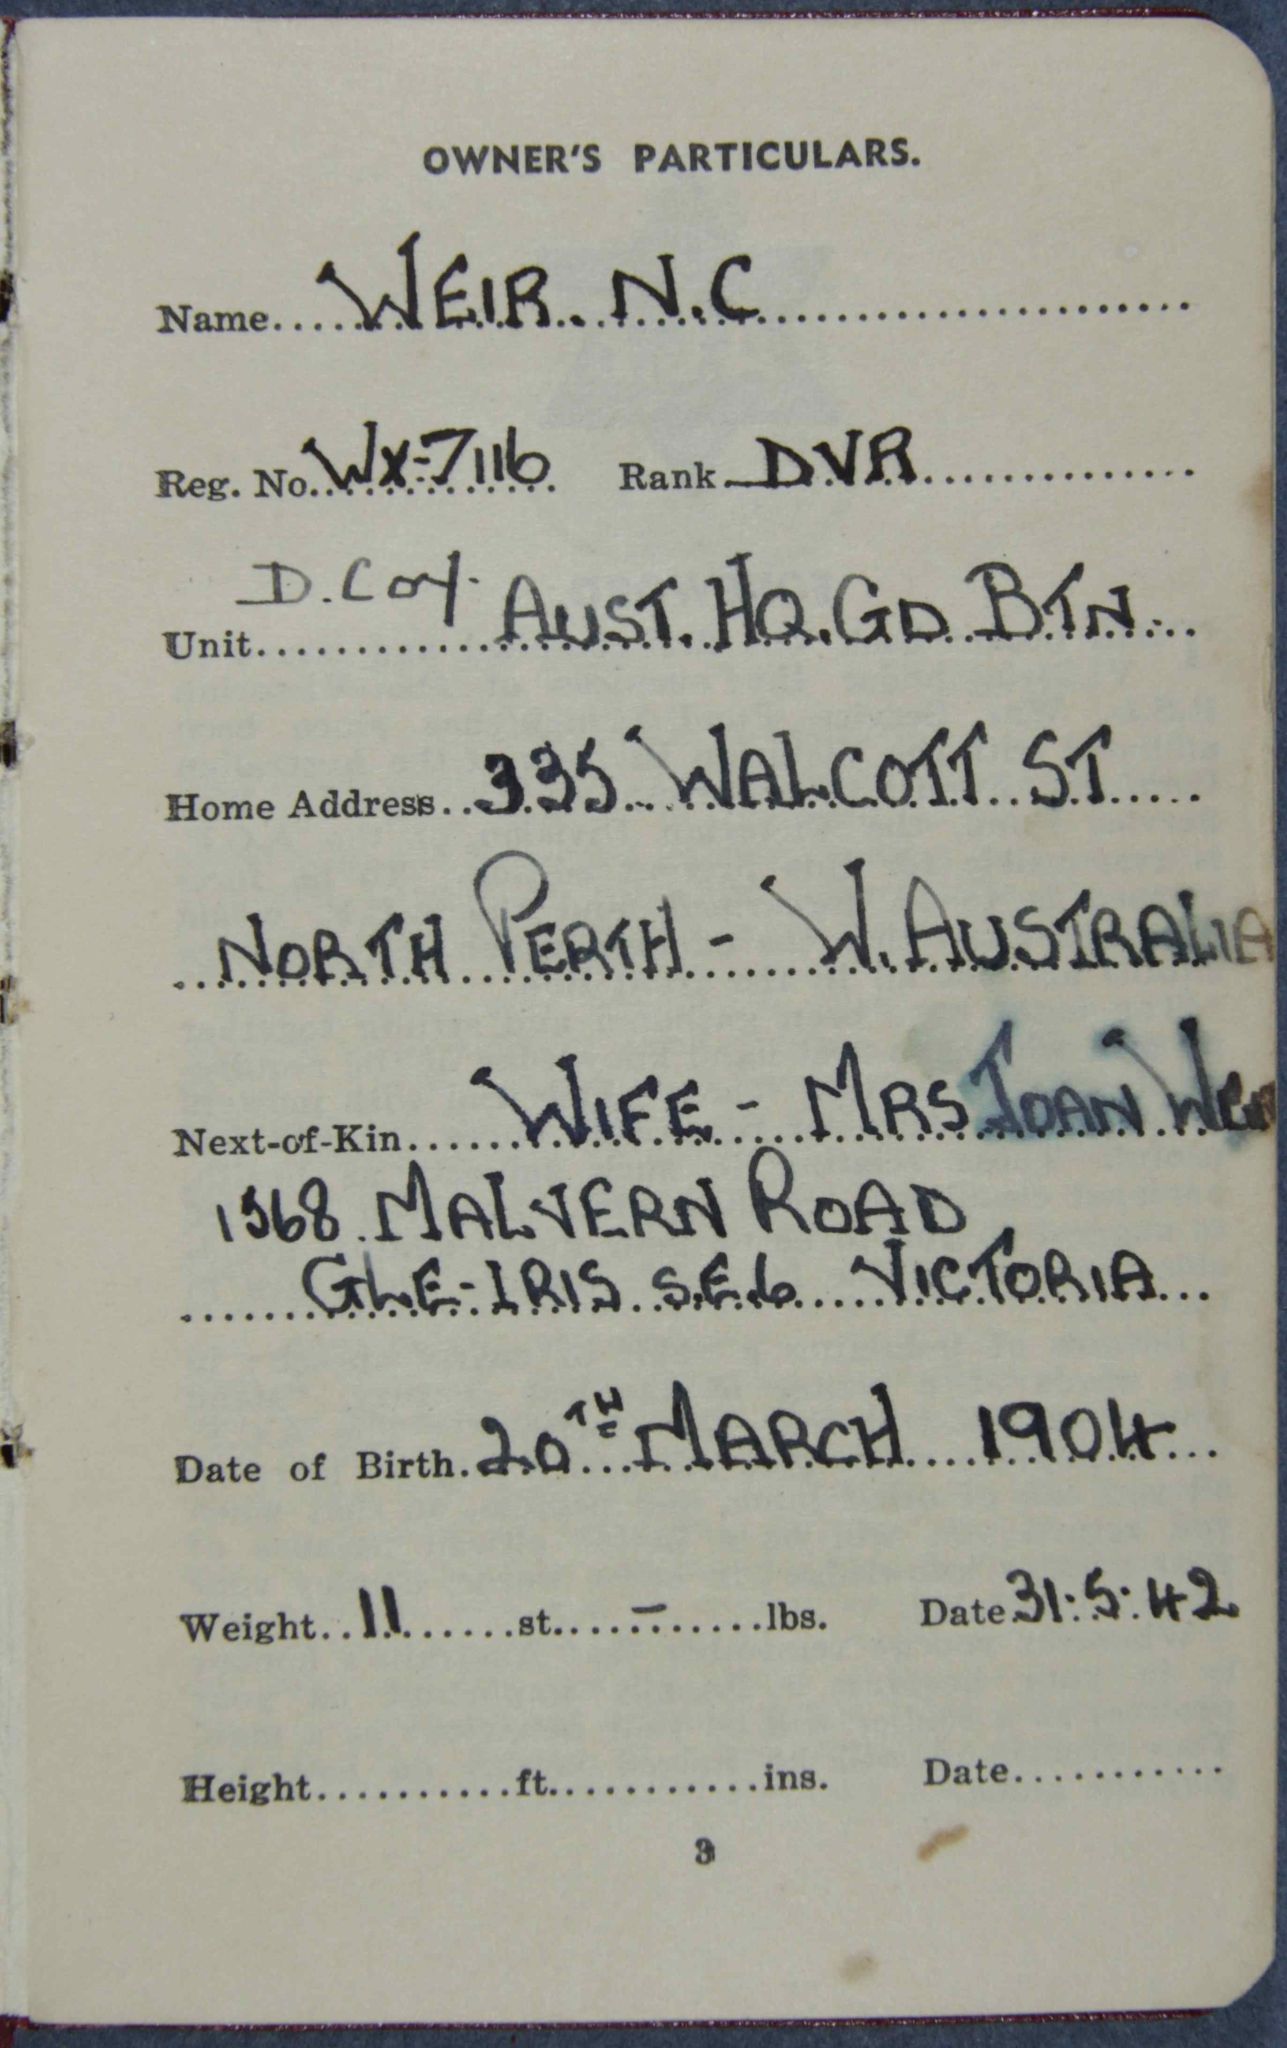 OWNER'S PARTICULARS.
Name WEIR. N.C
Reg. No. WX-7116 Rank DVR
D. Coy.
Unit AUST. HQ. GD. BTN.
Home Address 335 WALCOTT ST
NORTH PERTH - W. AUSTRALIA
Next-of-Kin WIFE - MRS JOAN WEIR
1568 MALVERN ROAD
GLE-IRIS S.E.6 VICTORIA
Date of Birth 20TH MARCH 1904
Weight 11 st. - lbs. Date 31:5:42
Height ft. ins. Date
3